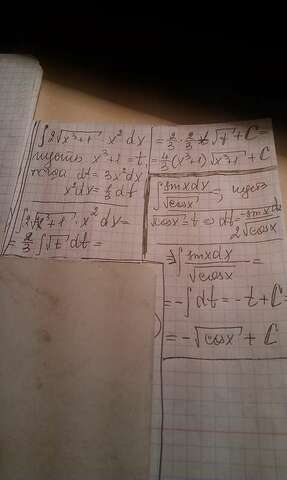 ∫2√(x³+1) · x² dx
пусть x³+1 = t,
тогда dt = 3x²dx
x²dx = 1/3 dt
∫2√(x³+1) · x² dx =
= 2/3 ∫√t dt =
= 2/3 · 2/3 t √t + C =
= 4/9 (x³+1) √(x³+1) + C
∫ sinx dx / √cosx ; пусть
√cosx = t ⇒ dt = -sinx dx / 2√cosx
⇒ ∫ sinx dx / √cosx =
= -∫dt = -t + C =
= -√cosx + C